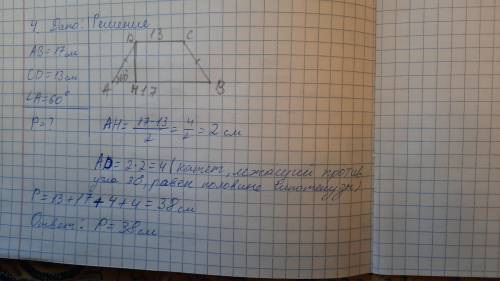 4. Дано: Решение
AB=17см
CD=13см
∠A=60°
P=?
D 13 C
60°
A H 17 B
AH= (17-13)/2 = 4/2 = 2 см
AD=2·2=4 (катет, лежащий против
угла 30, равен половине гипотенузы)
P=13+17+4+4=38см
Ответ: P=38см